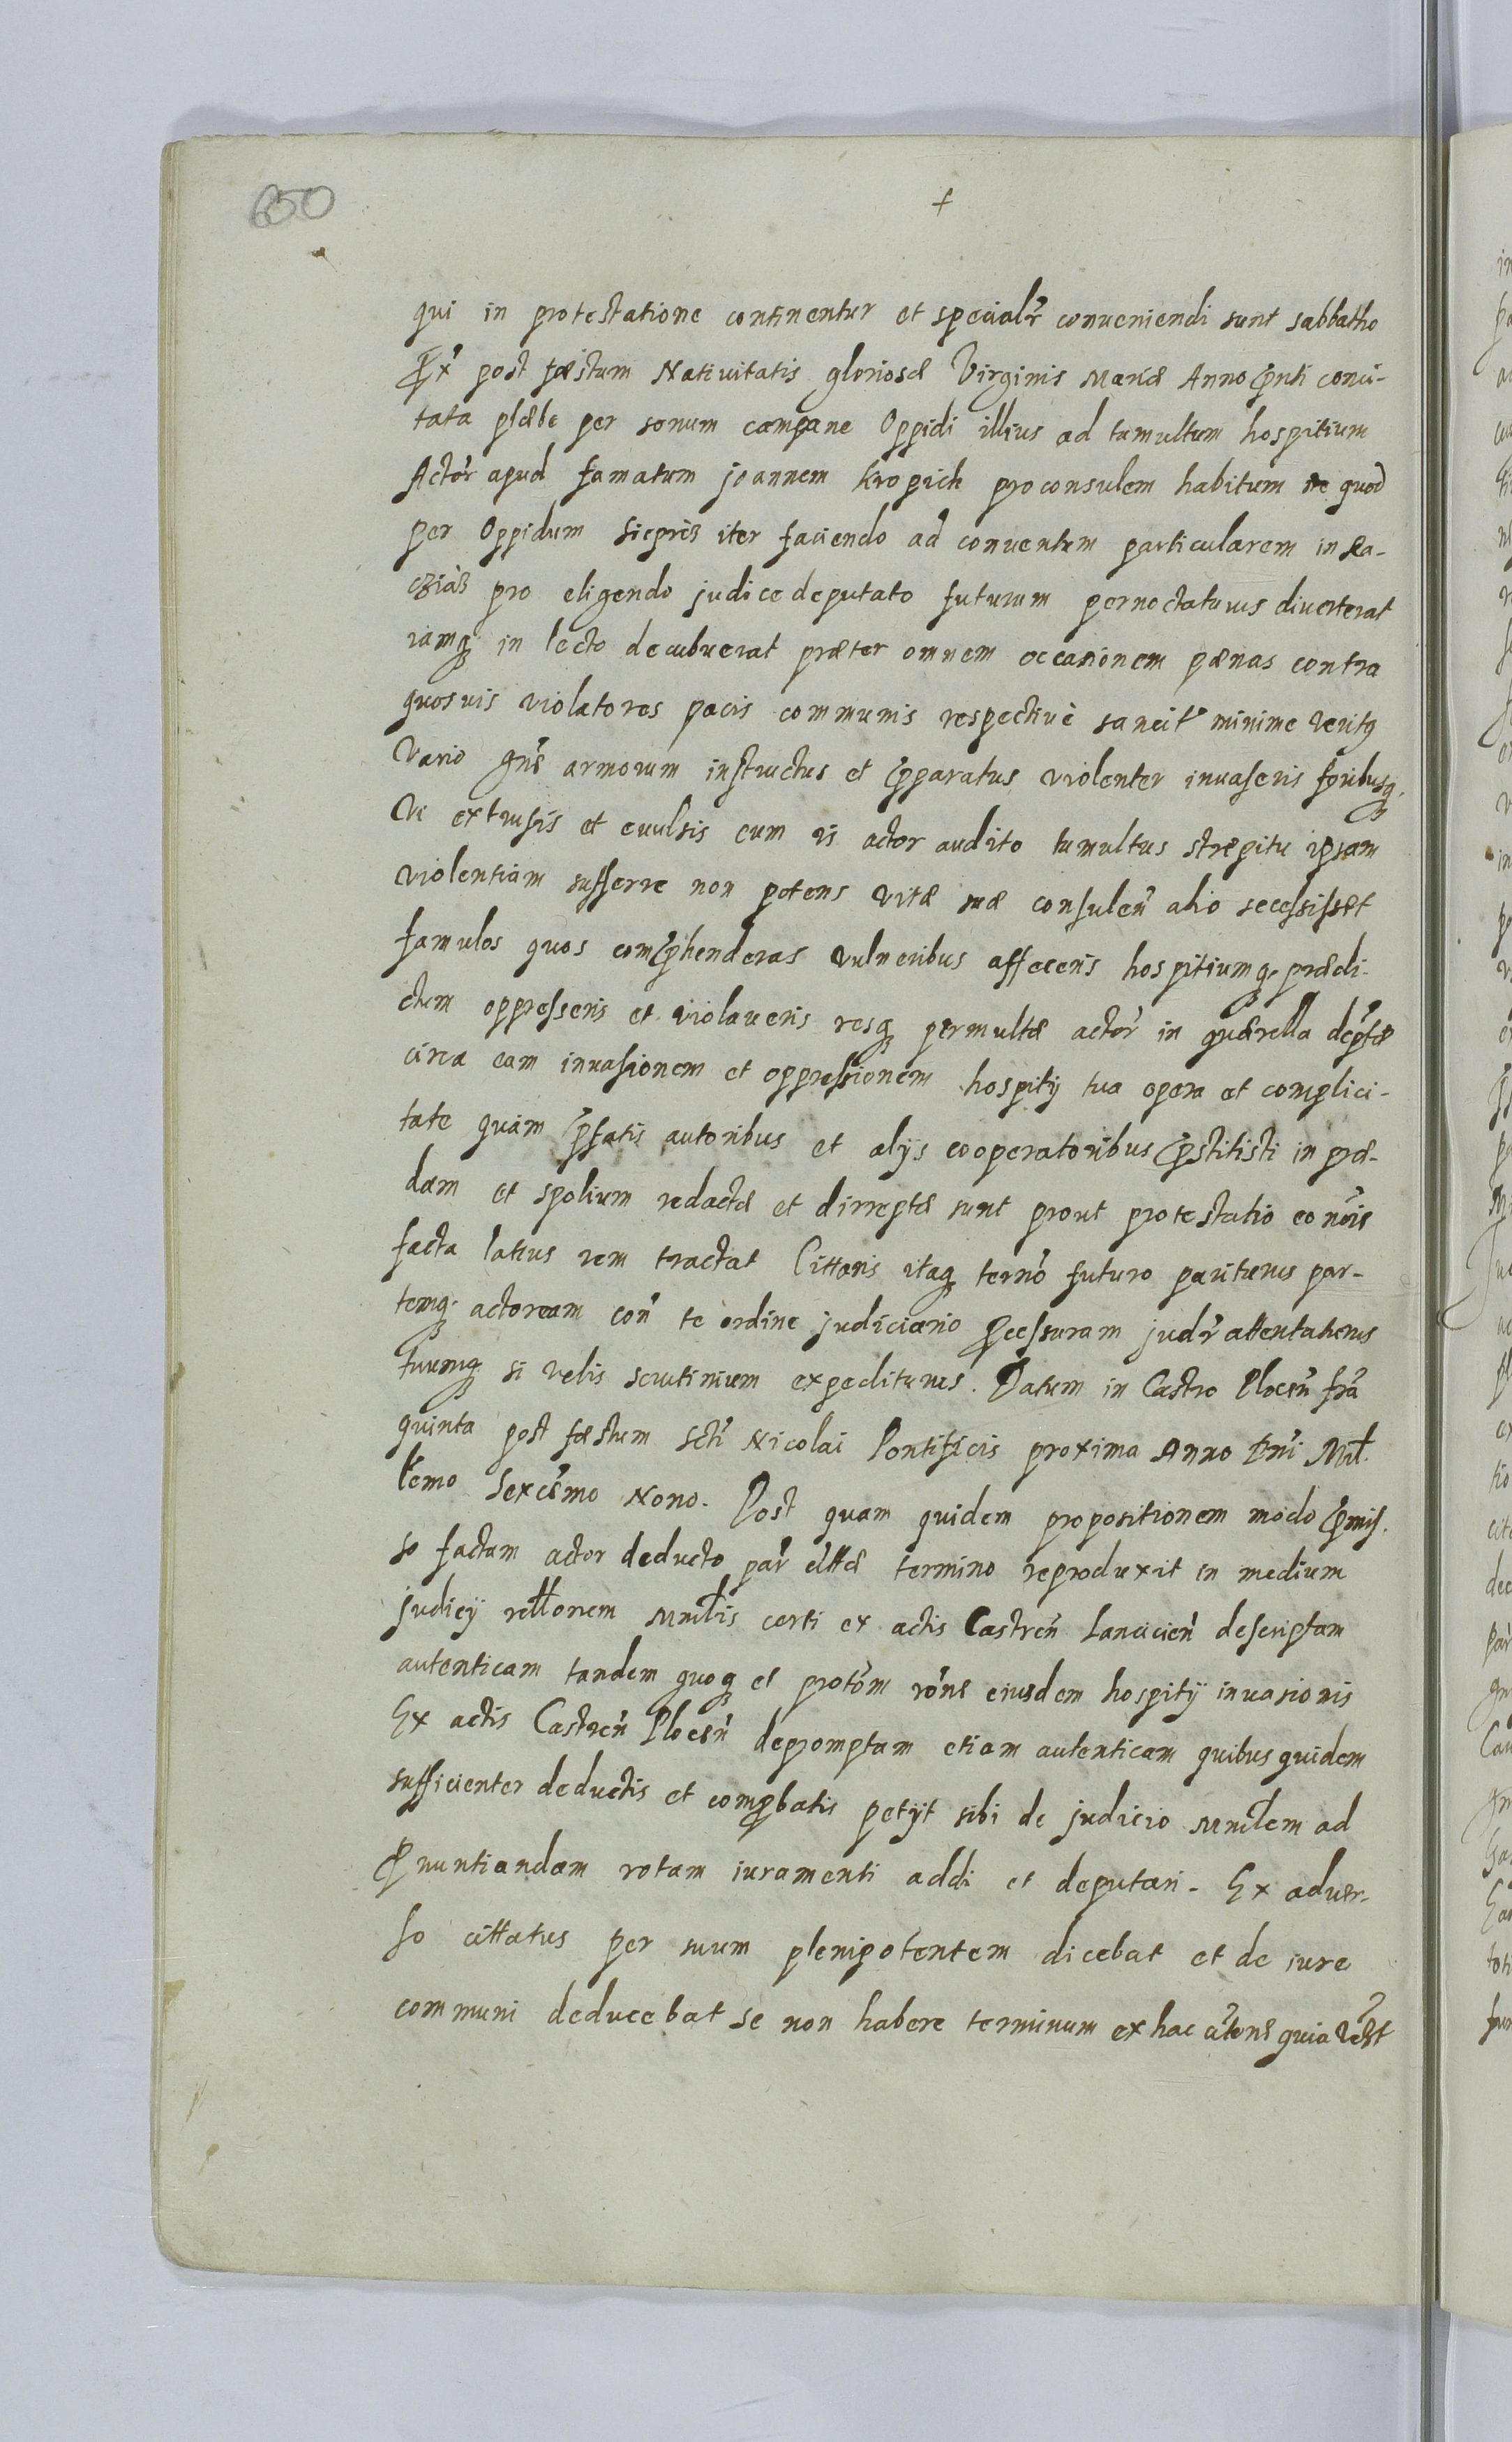 650
+
qui in protestatione continentur et specialr̃ conueniendi sunt sabbatho
Prox̃ post fæstum Natiuitatis gloriosæ Virginis Mariæ Anno p̃nti conci-
tata plæbe per sonum campane Oppidi illius ad tumultum hospitium
Actor̃ apud famatum joannem Kropich proconsulem habitum quod
per Oppidum Sieprcz iter faciendo ad conuentum particularem in Ra-
cziąz pro eligendo judice deputato futurum pernoctaturus diuerterat
iamq; in lecto decubuerat præter omnem occasionem pænas contra
quosuis violatores pacis communis respectiuè sancit minime veritq
Vario gñe armorum instructus et p̃paratus violenter inuaseris foribusq;
Vi extrusis et euulsis cum is actor audito tumultus stræpitu ipsam
violentiam sufferre non potens vitæ suæ consuleñ alio secessissæt
famulos quos comp̃henderas vulneribus affeceris hospitiumq; prædi-
ctum oppresseris et violaueris resq; permultæ actor̃ in quærella dep̃tæ
circa eam inuasionem et oppressionem hospitij tua opera et complici-
tate quam p̃fatis autoribus et alijs cooperatoribus p̃stitisti in præ-
dam et spolium redactæ et dirreptæ sunt prout protestatio eo nõie
facta latius rem tractat Cittaris itaq; terñõ futuro pariturus par-
temq; actoream coñ te ordine judiciario Processuram judr̃ attentaturus
tuumq; si velis scrutinium expediturus. Datum in Castro Ploceñ fr̃a
quinta post fæstum Scti Nicolai Pontificis proxima Anno Dñi Mil-
lemo Sexcẽmo Nono. Post quam quidem propositionem modo p̃mis-
so factam actor deducto par̃ cittæ termino reproduxit in medium
judicij rellonem Mnlis certi ex actis Castreñ Lancicieñ descriptam
autenticam tandem quoq; et protõm rõne eiusdem hospitij inuasionis
Ex actis Castreñ Ploceñ depromptam etiam autenticam quibus quidem
sufficienter deductis et comprobatis petijt sibi de judicio Mnlem ad
Pronuntiandam rotam iuramenti addi et deputari. Ex aduer-
so cittatus per suum plenipotentem dicebat et de iure
communi deducebat se non habere terminum ex hac cĩtone quia